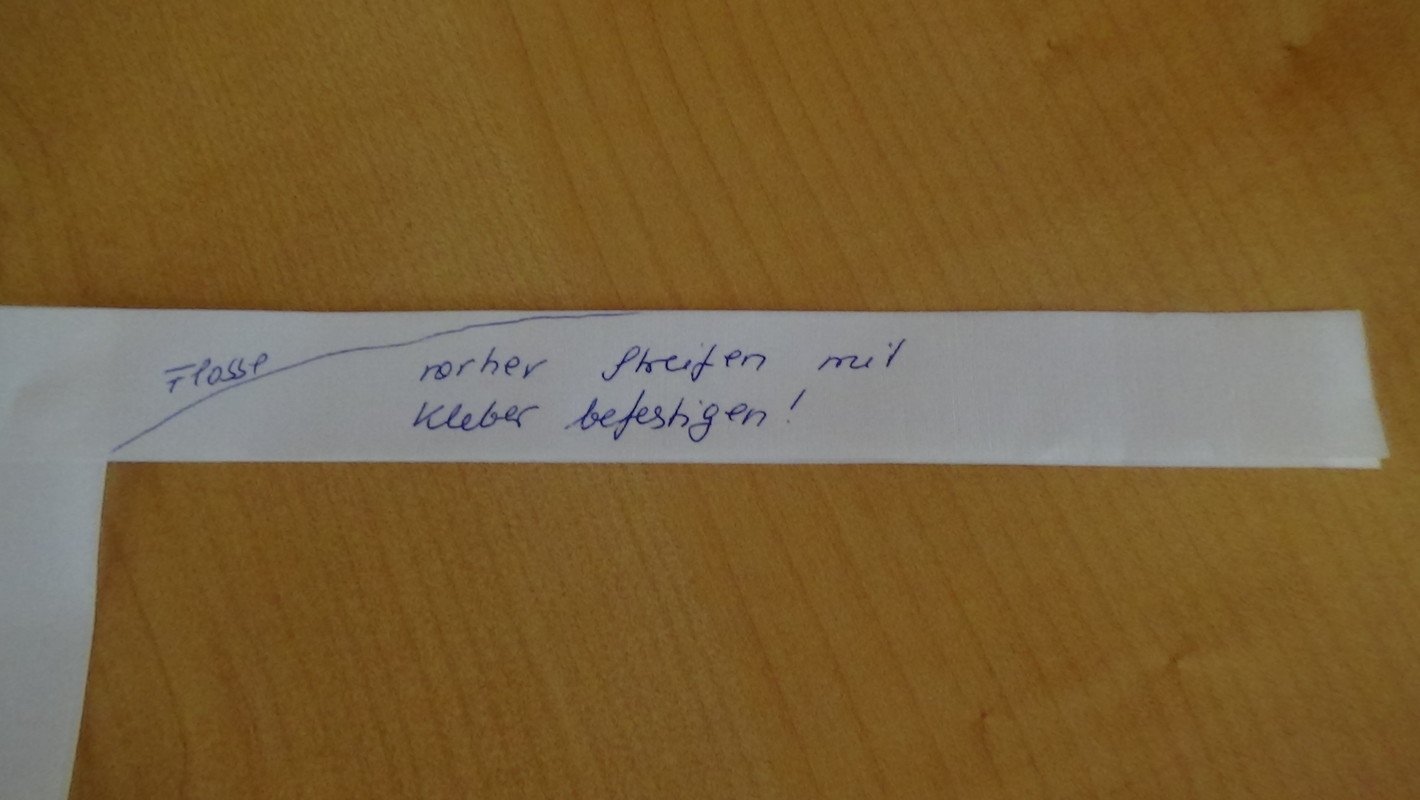 Flosse
vorher Streifen mit
Kleber befestigen!